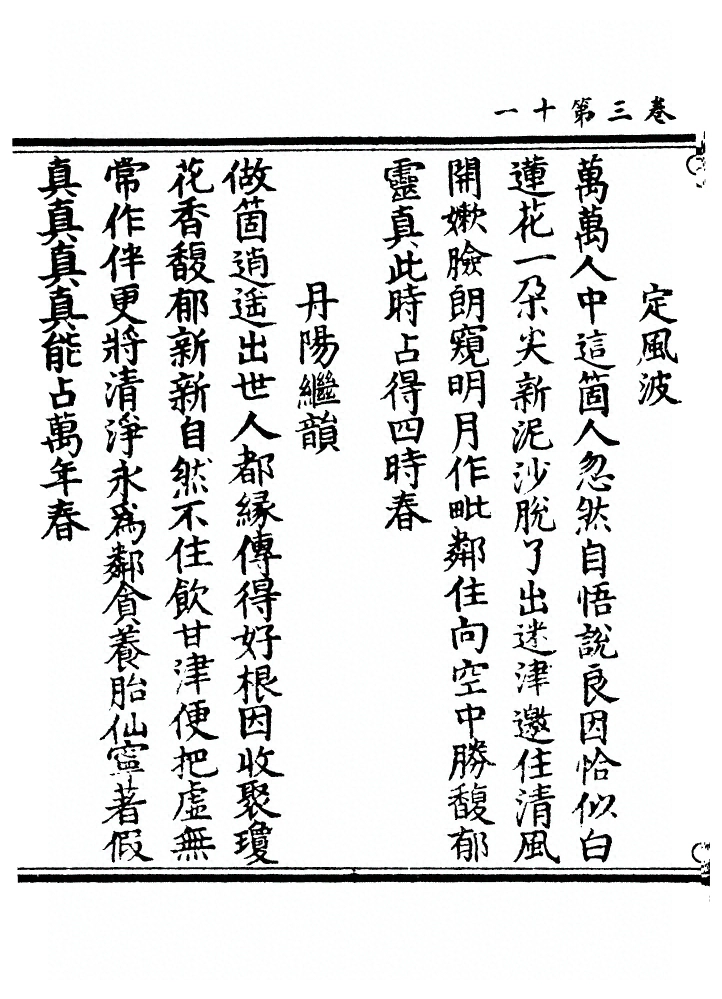 卷三第十一
定風波
萬萬人中這箇人忽然自悟說良因恰似白
蓮花一朶尖新泥沙脫了出迷津邀住清風
開嫰臉朗窺明月作毗鄰住向空中勝馥郁
靈真此時占得四時春
丹陽繼韻
做箇逍遥出世人都緣傳得好根因收聚瓊
花香馥郁新新自然不住飲甘津便把虛無
常作伴更將清淨永爲鄰貪養胎仙寧著假
真真真真能占萬年春